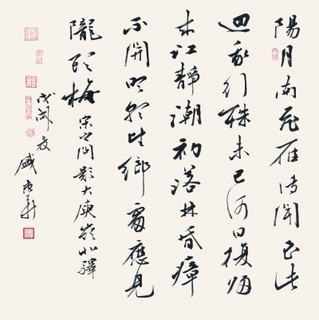 陽月南飛雁傳聞至此
迴我行殊未已何日復歸
來江靜潮初落林昏瘴
不開明朝望鄉處應見
隴頭梅宋之問題大庾嶺北驛
戊戌夏
盛